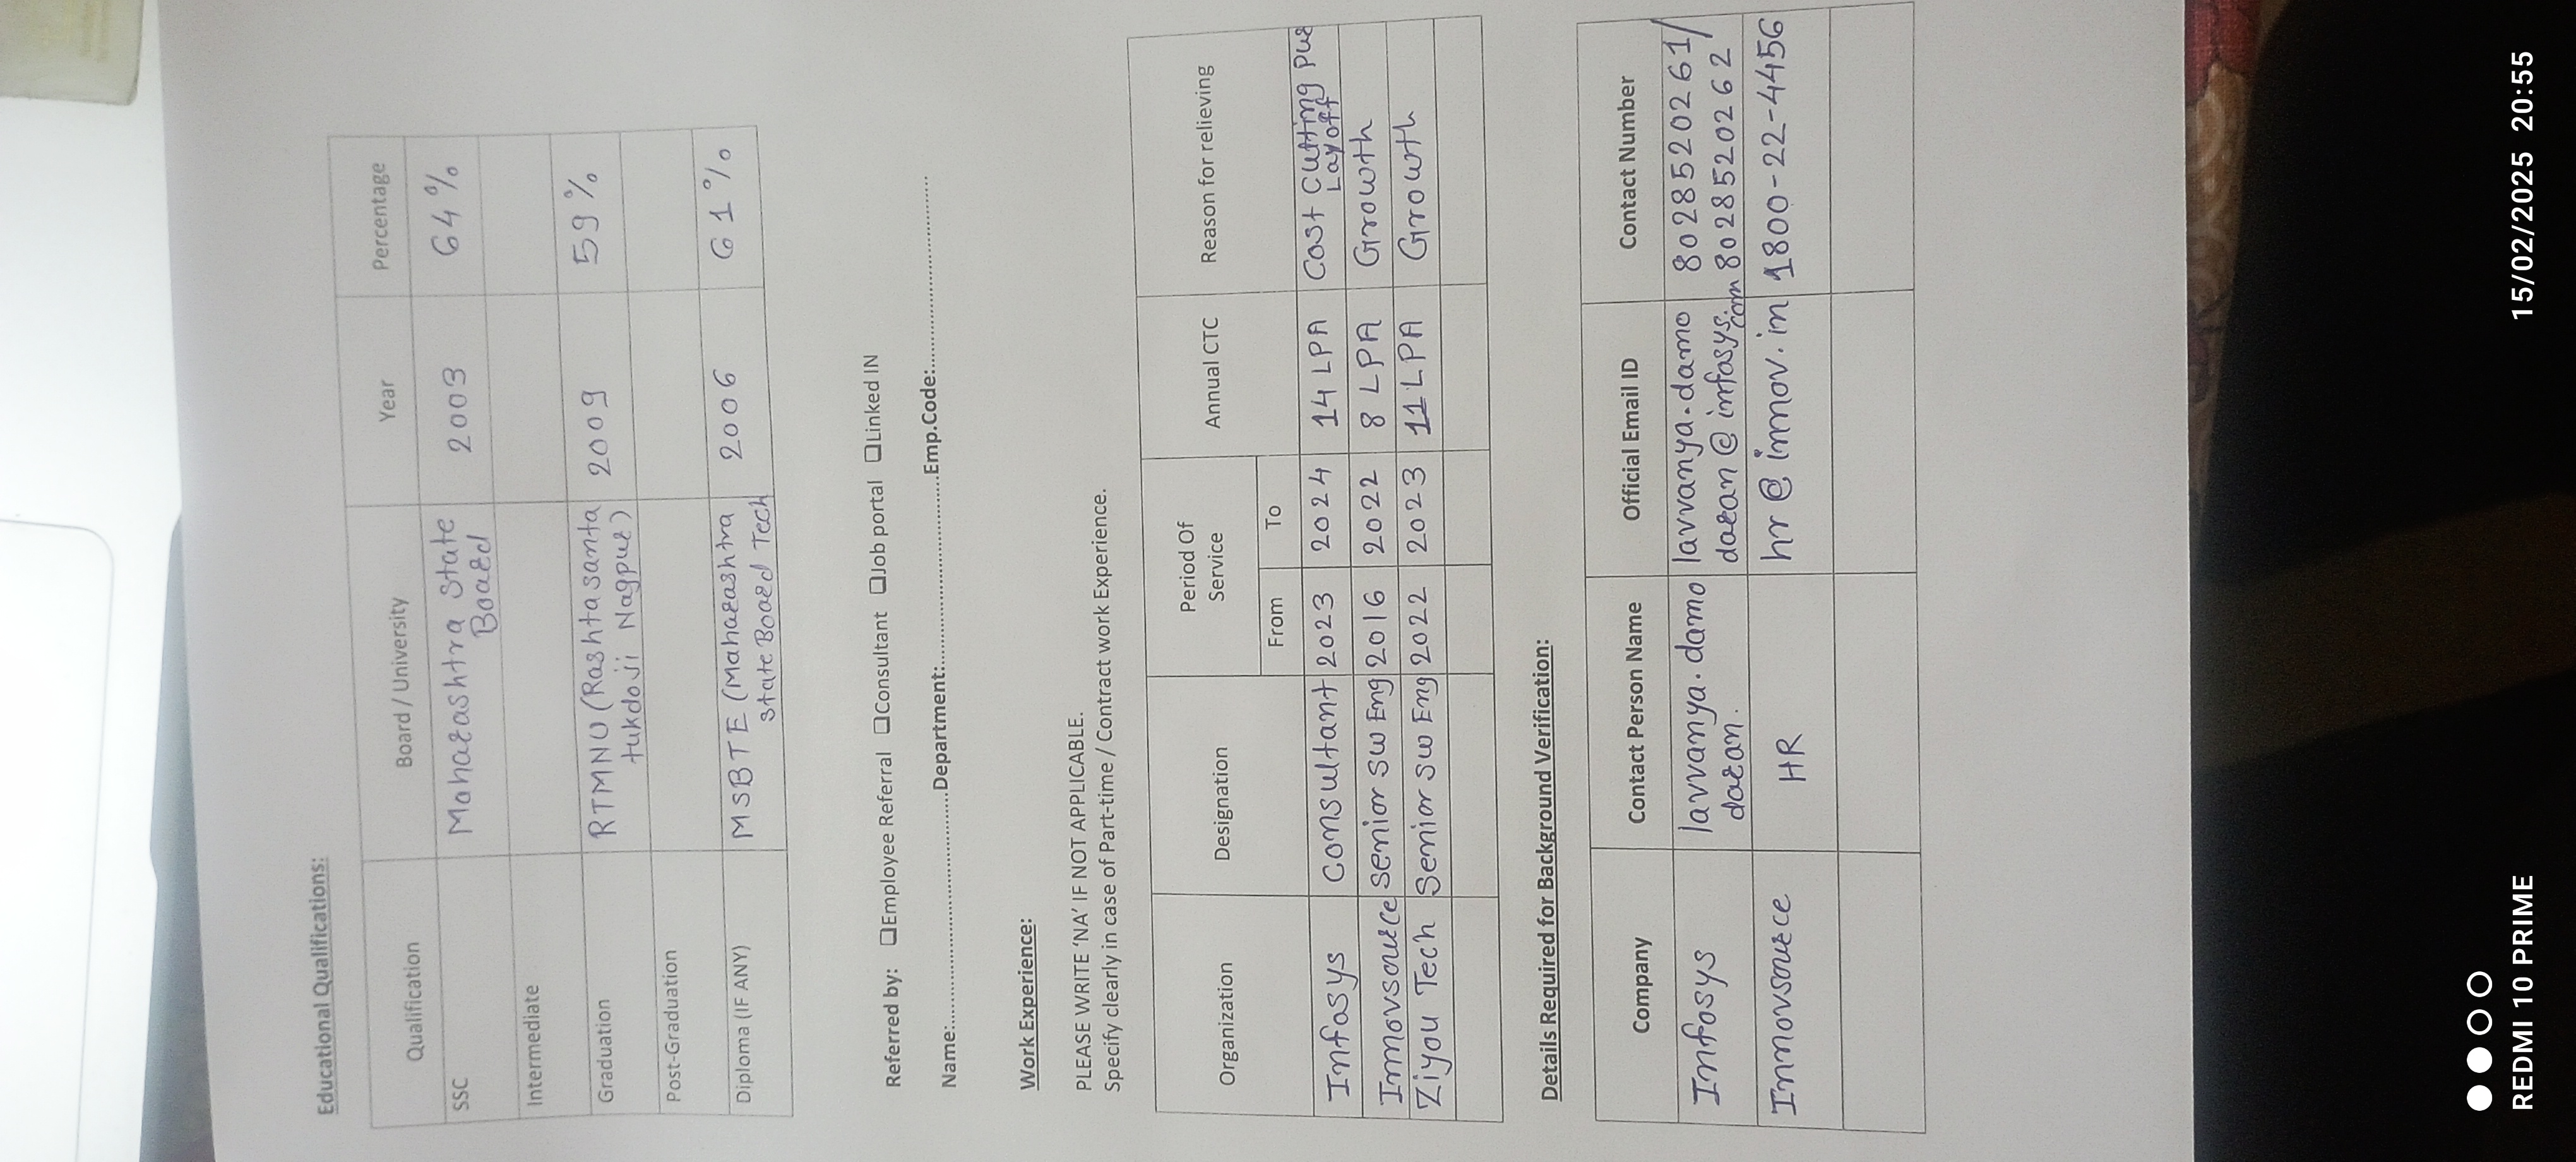 Educational Qualifications:
Qualification Board / University Year Percentage
SSC Maharashtra State Board 2003 64%
Intermediate
Graduation RTMNU (Rashtasanta tukdoji Nagpur) 2009 59%
Post-Graduation
Diploma (IF ANY) MSBTE (Maharashtra State Board Tech 2006 61%
Referred by: ❑Employee Referral ❑Consultant ❑Job portal ❑Linked IN
Name:......................................Department:..................................Emp.Code:...................................
Work Experience:
PLEASE WRITE ‘NA’ IF NOT APPLICABLE.
Specify clearly in case of Part-time / Contract work Experience.
Organization Designation Period Of Service Annual CTC Reason for relieving
From To
Infosys Consultant 2023 2024 14 LPA Cost Cutting Layoff
Innovsource Senior SW Eng 2016 2022 8 LPA Growth
Ziyou Tech Senior SW Eng 2022 2023 11 LPA Growth
Details Required for Background Verification:
Company Contact Person Name Official Email ID Contact Number
Infosys lavvanya.damo daran. lavvanya.damo daran@infosys.com 8028520261/ 8028520262
Innovsource HR hr@innov.in 1800-22-4456
REDMI 10 PRIME
15/02/2025 20:55